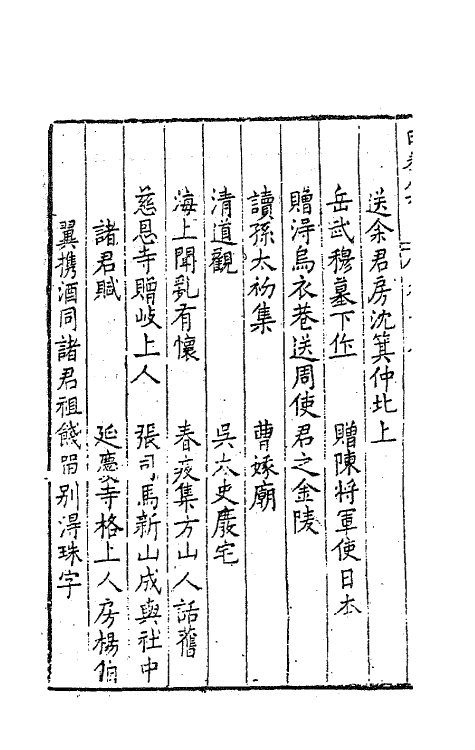 送余君房沈箕仲北上
岳武穆墓下作　贈陳将軍使日本
贈淂烏衣巷送周使君之金陵
讀孫太初集　曹娥廟
清道觀　吳太史廢宅
海上聞亂有懷　春疫集方山人話舊
慈恩寺贈岐上人　張司馬新山成與社中
諸君賦　延慶寺格上人房楊伯
翼攜酒同諸君祖餞留别淂珠字